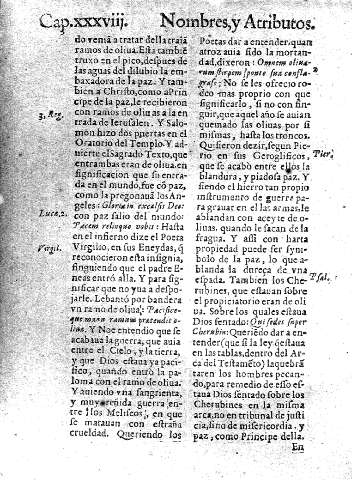 Cap. xxxviij. Nombres, y Atributos.
do venia a tratar della traiã
ramos de oliua. Esta tambiẽ
truxo en el pico, despues de
las aguas del dilubio la em-
baxadora de la paz. Y tam-
bien a Christo, como a Prin-
cipe de la paz, le recibieron
con ramos de oliua a la en-
trada de Ierusalen. Y Salo-
3. Reg.
mõn hizo dos puertas en el
Oratorio del Templo. Y ad-
uierte el Sagrado Texto, que
entrambas eran de oliua. En
significacion que su entra-
da en el mundo, fue cõ paz,
como la pregonauã los An-
geles: Gloria in excelsis Deo:
Luc. 2.
con paz salio del mundo:
Pacem relinquo vobis: Hasta
en el infierno dize el Poeta
Virgil.
Virgilio, en sus Eneydas, q̃
reconocieron esta insignia,
fingiendo que el padre E-
neas entrò alla. Y para signi-
ficar que no yua a despo-
jarle. Lebantò por bandera
vn ramo de oliua: Pacifice-
que manu ramum pretendit o-
liua. Y Noe entendio que se
acabaua la guerra, que auia
entre el Cielo, y la tierra,
y que Dios estaua ya paci-
fico, quando entrò la pa-
loma con el ramo de oliua.
Y auiendo vna sangrienta,
y muy reñida guerra en-
tre los Meliseos, en que
se matauan con estraña
crueldad. Queriendo los
Poetas dar a entender, quan
atroz auia sido la mortan-
dad, dixeron: Omnem oliua-
rum stirpem sponte sua confla-
grasse: No se les ofrecio ro-
deo mas proprio con que
significarlo, si no con fin-
guir, que aquel año se auian
quemado las oliuas por si
mismas, hasta los troncos.
Quisieron dezir, segun Pie-
Pier.
rio en sus Geroglificos,
que se acabò entre ellos la
blandura, y piadosa paz. Y
siendo el hierro tan proprio
instrumento de guerra pa-
ra grauar en el las armas, le
ablandan con azeyte de oli-
uas, quando le sacan de la
fragua. Y assi con harta
propiedad puede ser sym-
bolo de la paz, lo que a-
blanda la dureça de vna
espada. Tambien los Che-
Psal.
rubines, que estauan sobre
el propiciatorio eran de oli-
ua. Sobre los quales estaua
Dios sentado: Qui sedes super
Cherubim: Queriẽdo dar a en-
tender (que si la ley estaua
en las tablas, dentro del Ar-
ca del Testamẽto) la quebrã
taren los hombres pecan-
do, para remedio de esso es-
taua Dios sentado sobre los
Cherubines en la misma
arca, no en tribunal de justi-
cia, sino de misericordia, y
paz, como Principe della.
En